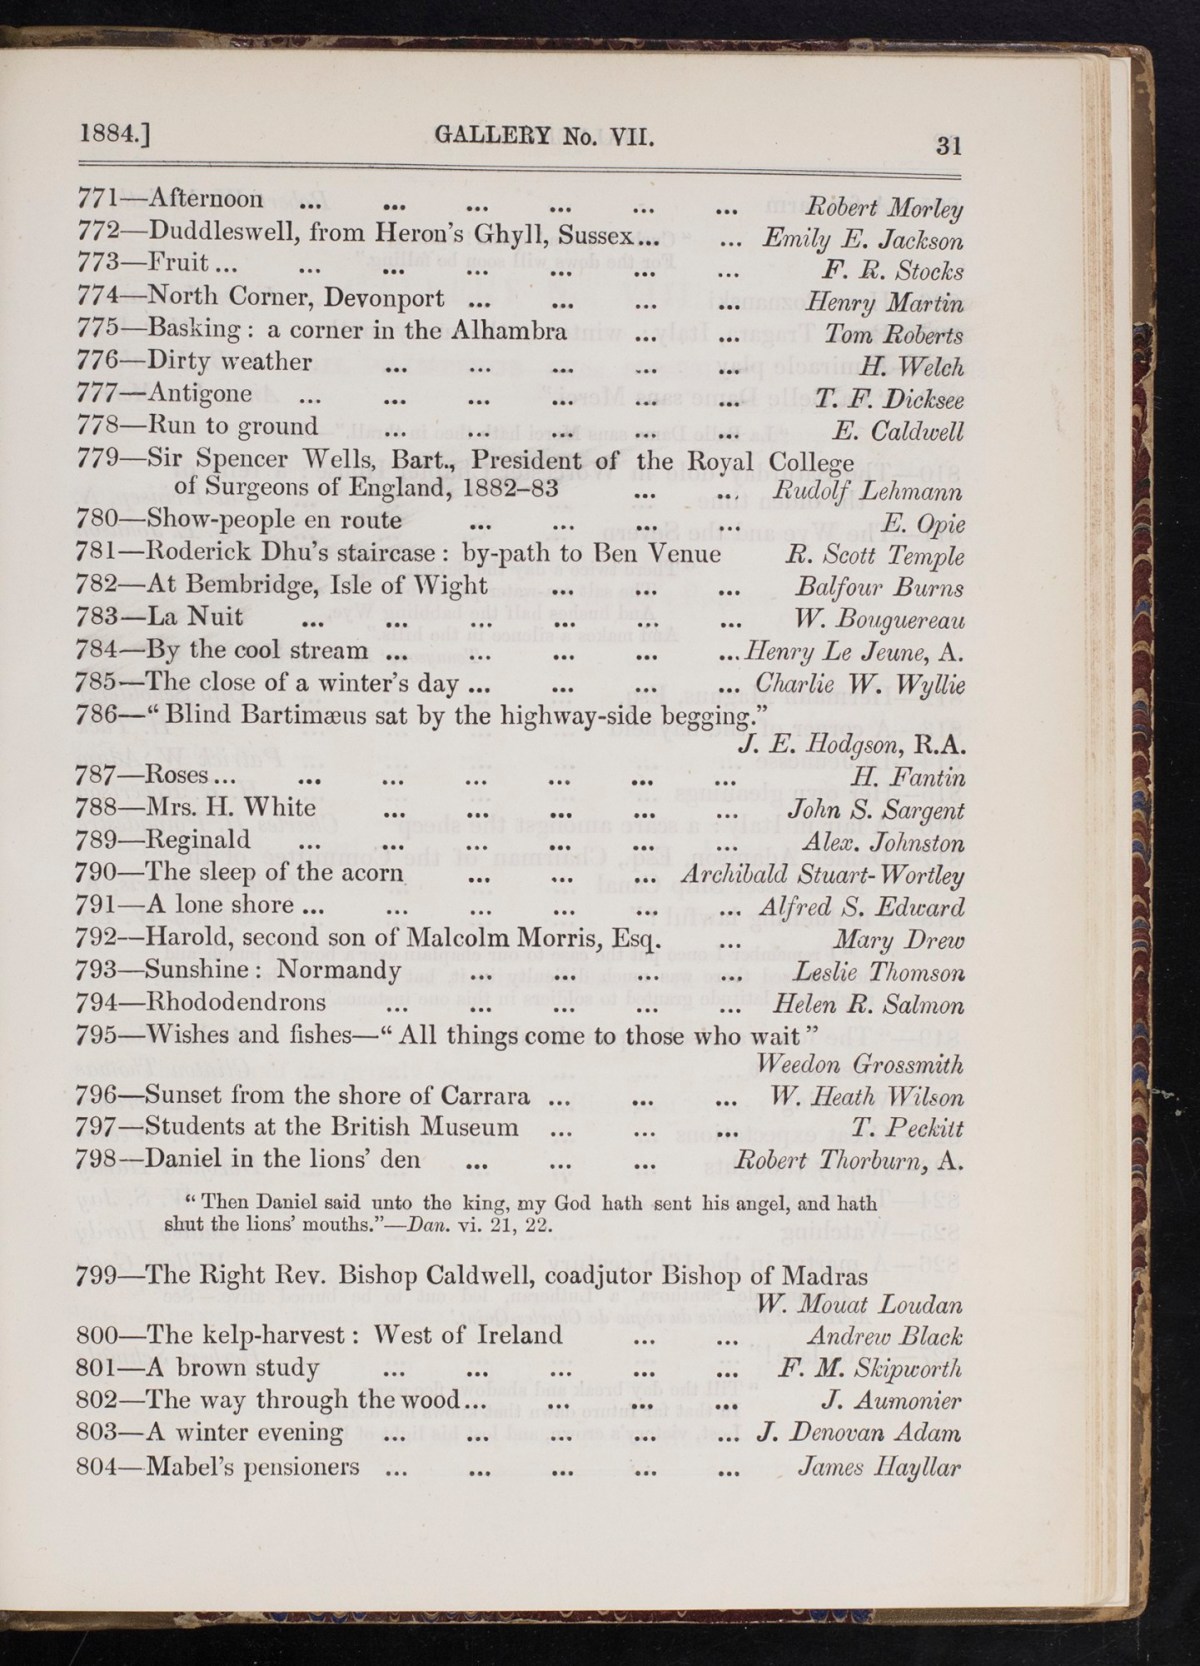 1884.] GALLERY No. VII. 31
771—Afternoon ... ... ... ... ... ... Robert Morley
772—Duddleswell, from Heron's Ghyll, Sussex... ... Emily E. Jackson
773—Fruit... ... ... ... ... ... ... F. R. Stocks
774—North Corner, Devonport ... ... ... ... Henry Martin
775—Basking: a corner in the Alhambra ... ... Tom Roberts
776—Dirty weather ... ... ... ... ... H. Welch
777—Antigone ... ... ... ... ... ... T. F. Dicksee
778—Run to ground ... ... ... ... ... E. Caldwell
779—Sir Spencer Wells, Bart., President of the Royal College
of Surgeons of England, 1882–83 ... ... Rudolf Lehmann
780—Show-people en route ... ... ... ... E. Opie
781—Roderick Dhu's staircase: by-path to Ben Venue R. Scott Temple
782—At Bembridge, Isle of Wight ... ... ... Balfour Burns
783—La Nuit ... ... ... ... ... ... W. Bouguereau
784—By the cool stream ... ... ... ... ... Henry Le Jeune, A.
785—The close of a winter's day ... ... ... ... Charlie W. Wyllie
786—“Blind Bartimæus sat by the highway-side begging.”
J. E. Hodgson, R.A.
787—Roses... ... ... ... ... ... ... H. Fantin
788—Mrs. H. White ... ... ... ... ... John S. Sargent
789—Reginald ... ... ... ... ... ... Alex. Johnston
790—The sleep of the acorn ... ... ... Archibald Stuart-Wortley
791—A lone shore ... ... ... ... ... ... Alfred S. Edward
792—Harold, second son of Malcolm Morris, Esq. ... Mary Drew
793—Sunshine: Normandy ... ... ... ... Leslie Thomson
794—Rhododendrons ... ... ... ... ... Helen R. Salmon
795—Wishes and fishes—“All things come to those who wait”
Weedon Grossmith
796—Sunset from the shore of Carrara ... ... ... W. Heath Wilson
797—Students at the British Museum ... ... ... T. Peckitt
798—Daniel in the lions' den ... ... ... Robert Thorburn, A.
“Then Daniel said unto the king, my God hath sent his angel, and hath
shut the lions' mouths.”—Dan. vi. 21, 22.
799—The Right Rev. Bishop Caldwell, coadjutor Bishop of Madras
W. Mouat Loudan
800—The kelp-harvest: West of Ireland ... ... Andrew Black
801—A brown study ... ... ... ... ... F. M. Skipworth
802—The way through the wood... ... ... ... J. Aumonier
803—A winter evening ... ... ... ... ... J. Denovan Adam
804—Mabel's pensioners ... ... ... ... ... James Hayllar